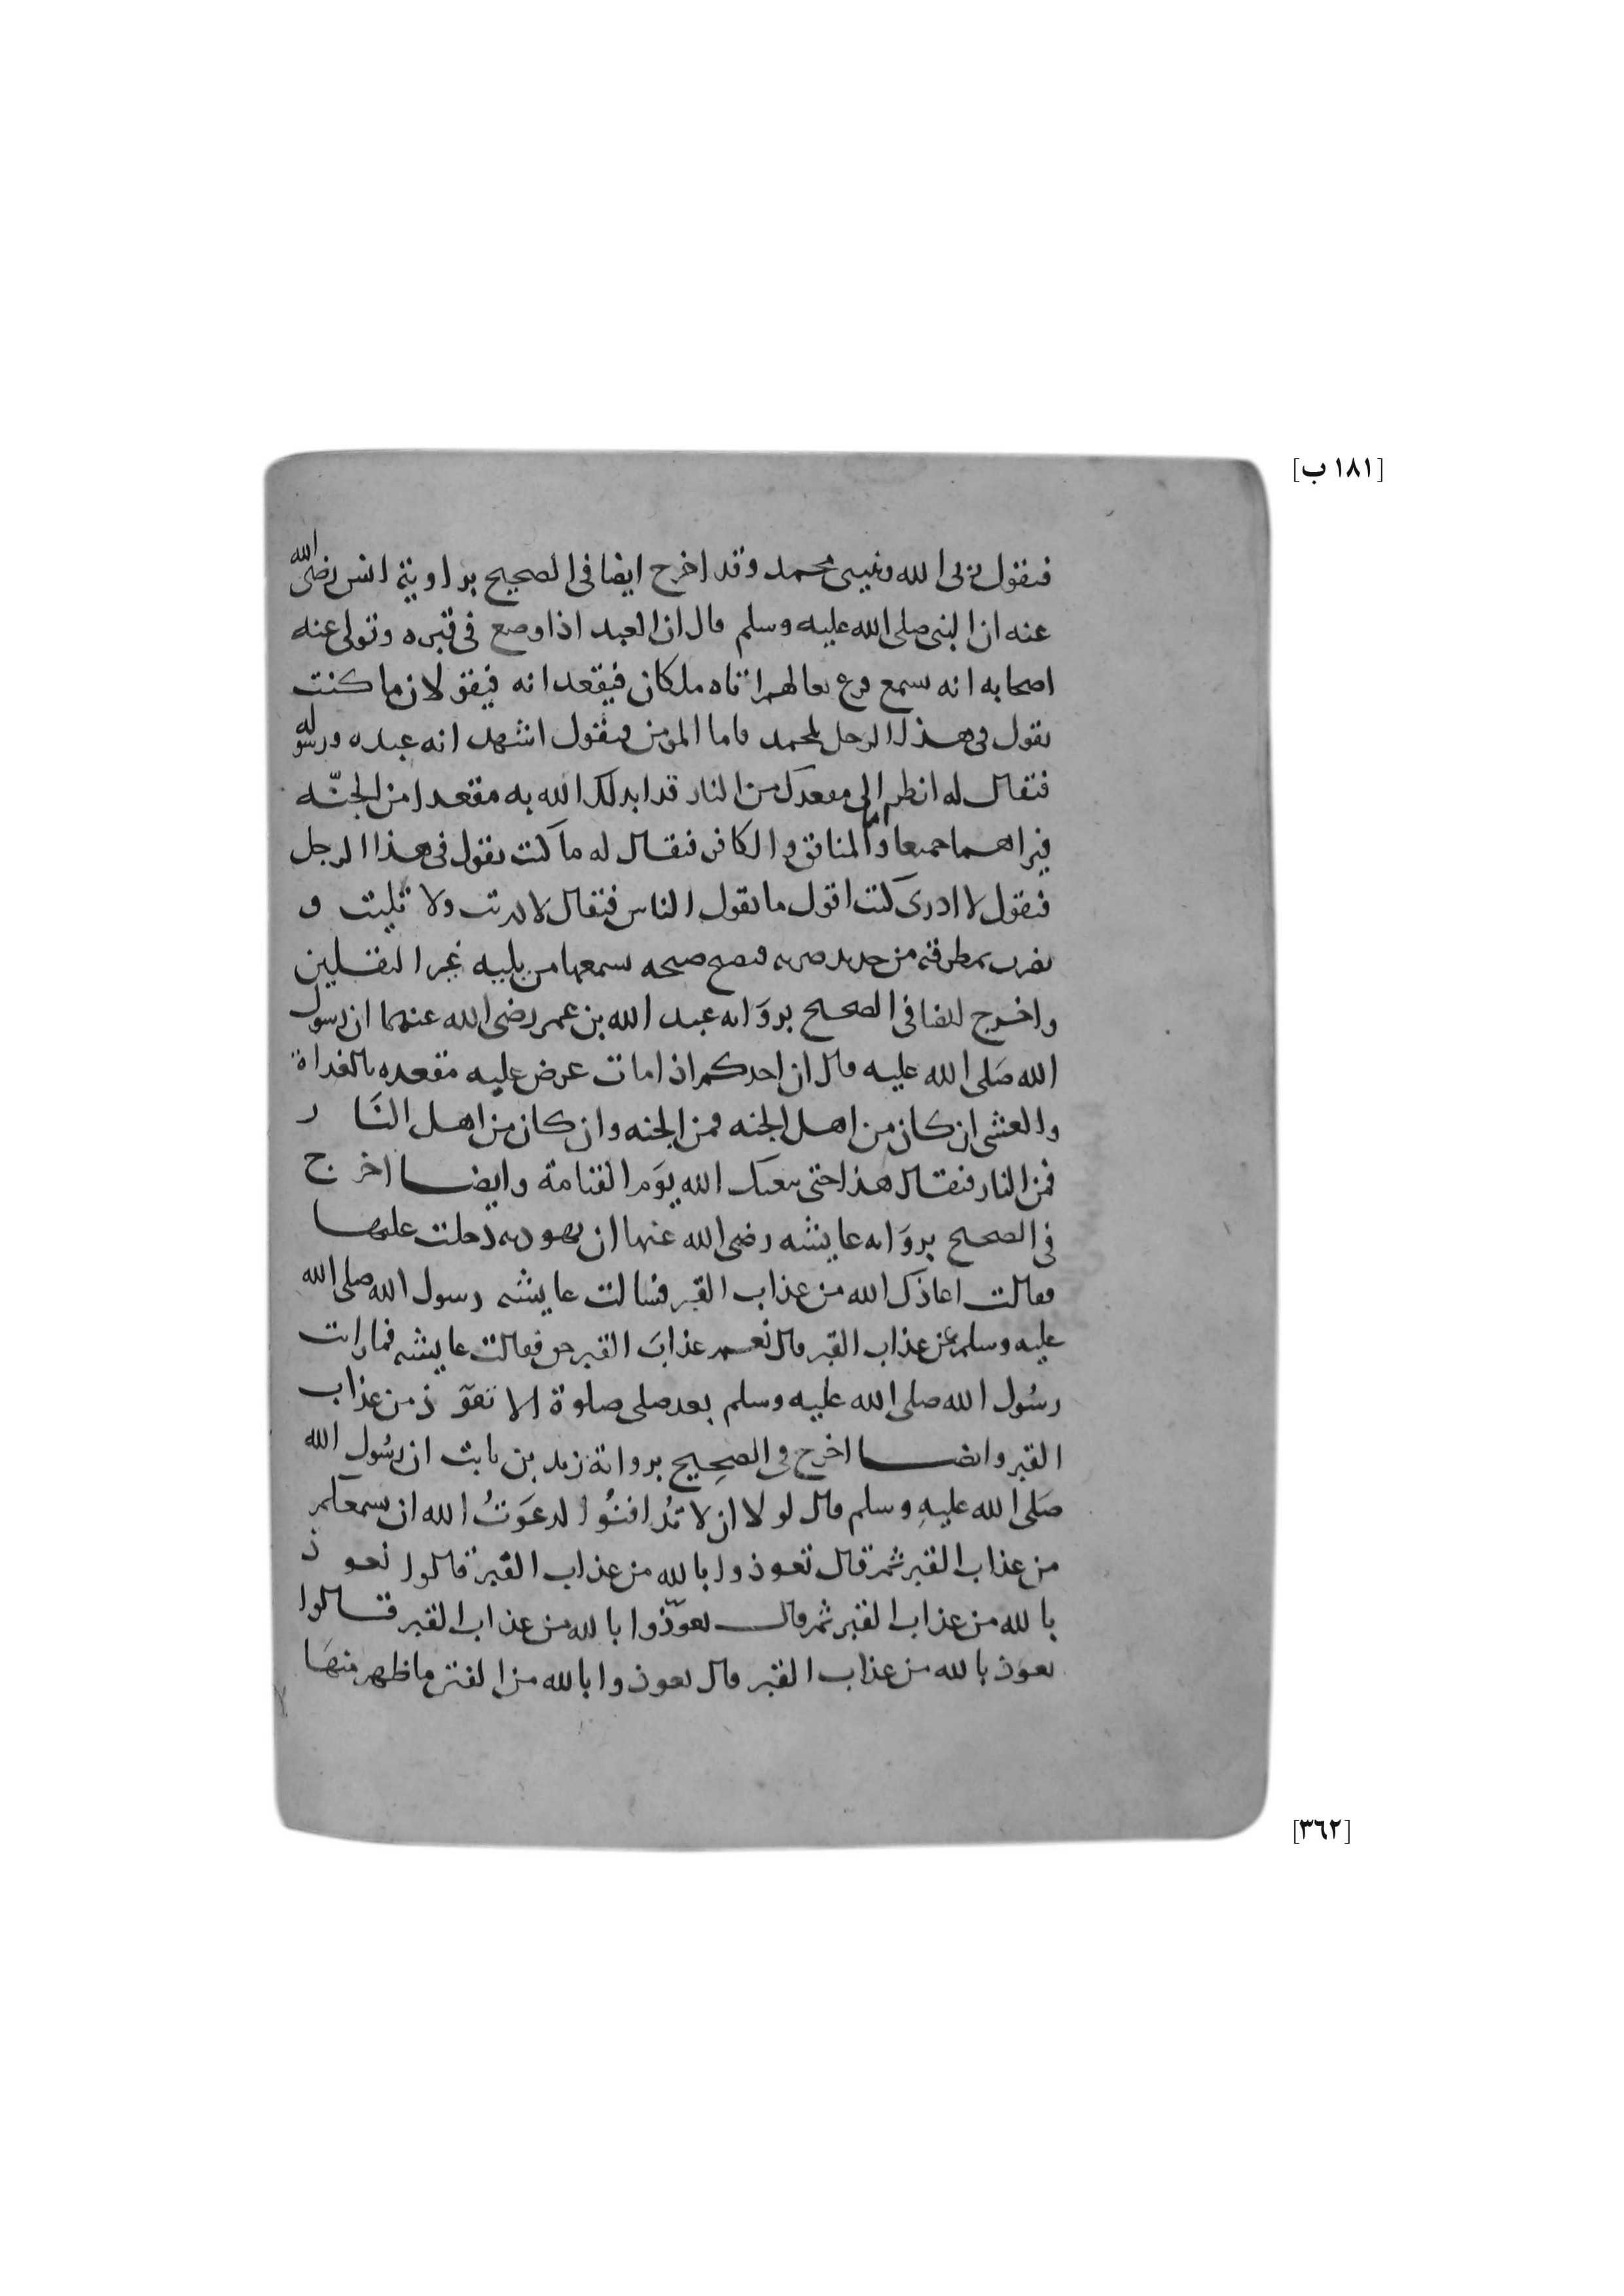 [١٨١ ب]
فيقول ربي الله ونبيي محمد وقد اخرج ايضا في الصحيح برواوية انس رضي الله
عنه ان النبي صلى الله عليه وسلم قال ان العبد اذا وضع في قبره وتولى عنه
اصحابه انه يسمع قرع نعالهم اتاه ملكان فيقعدانه فيقولان ما كنت
تقول في هذا الرجل لمحمد فاما المؤمن فيقول اشهد انه عبده ورسوله
فيقال له انظر الى مقعدك من النار قد ابدلك الله به مقعدا من الجنّة
فيراهما جميعا واما المنافق والكافر فيقال له ما كنت تقول في هذا الرجل
فيقول لا ادرى كنت اقول ما يقول الناس فيقال لا دريت ولا تليت و
يضرب بمطرقة من حديد ضربة فيصيح صيحة يسمعها من يليه غير الثقلين
واخرج ايضا في الصحيح بروَاية عبد الله بن عمر رضى الله عنهما ان رسول
الله صَلى الله عليه قال ان احدكم اذا مات عرض عليه مقعده بالغداة
والعشى ان كان من اهل الجنه فمن الجنه وان كان من اهل النَار
فمن النار فيقال هذا حتى يبعثك الله يوَم القيامة وايضا اخرج
في الصحيح بروَاية عايشه رضى الله عنها ان يهودية دخلت عليها
فقالت اعاذك الله من عذاب القبر فسالت عايشه رسول الله صلى الله
عليه وسلم عن عذاب القبر قال نعم عذابَ القبر حق فقالت عايشه فما رايت
رسُول الله صلى الله عليه وسلم بعد صلى صلوة الا تعوّذ من عذاب
القبر وايضا اخرج في الصحِيح برواية زيد بن ثابت ان رسُول الله
صَلى الله عليهِ وسلم قال لولا ان لا تدُافنُوا لدعَوتُ الله ان يسمعكم
من عذاب القبر ثم قال تعوذوا بالله من عذاب القبر قالوا نعوذ
بالله من عذاب القبر ثم قال تعوّذوا بالله من عذاب القبر قالوا
نعوذ بالله من عذاب القبر قال تعوذوا بالله من الفتن ما ظهر منهَا
[٣٦٢]